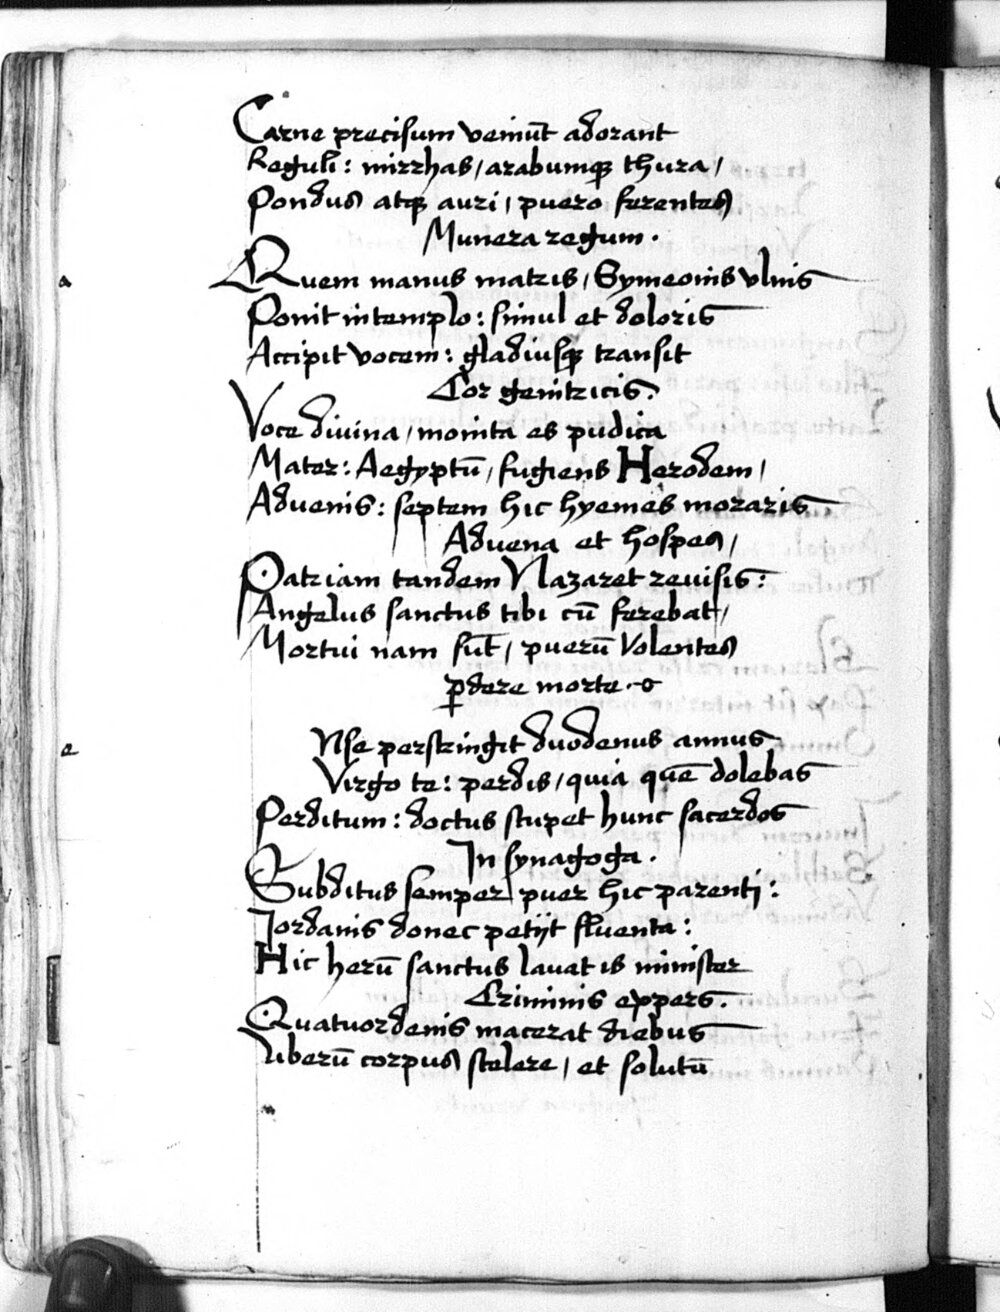 Carne precisum veniūt adorant
Reguli: mirrhas/ arabumqꝫ thura/
Pondus atqꝫ auri/ puero ferentes
Munera regum.
Quem manus matris/ Symeonis vlnis
Ponit in templo: simul et doloris
Accipit vocem: gladiusqꝫ transit
Cor genitricis.
Voce divina/ monita es pudica
Mater: Aegyptū/ fugiens Herodem/
Aduenis: septem hic hyemes moraris
Aduena et hospes/
Patriam tandem Nazaret reuisis:
Angelus sanctus tibi cū ferebat/
Mortui nam sūt/ puerū Volentes
ꝑdere morte.
Nse perstringit duodenus annus
Virgo te: perdis/ quia quē dolebas
Perditum: doctus stupet hunc sacerdos
In synagoga.
Subditus semper puer hic parenti:
Jordanis donec petijt fluenta:
Hic herū sanctus lauat is minister
Criminis expers.
Quatuordenis macerat diebus
Liberū corpus scelere/ et solutū